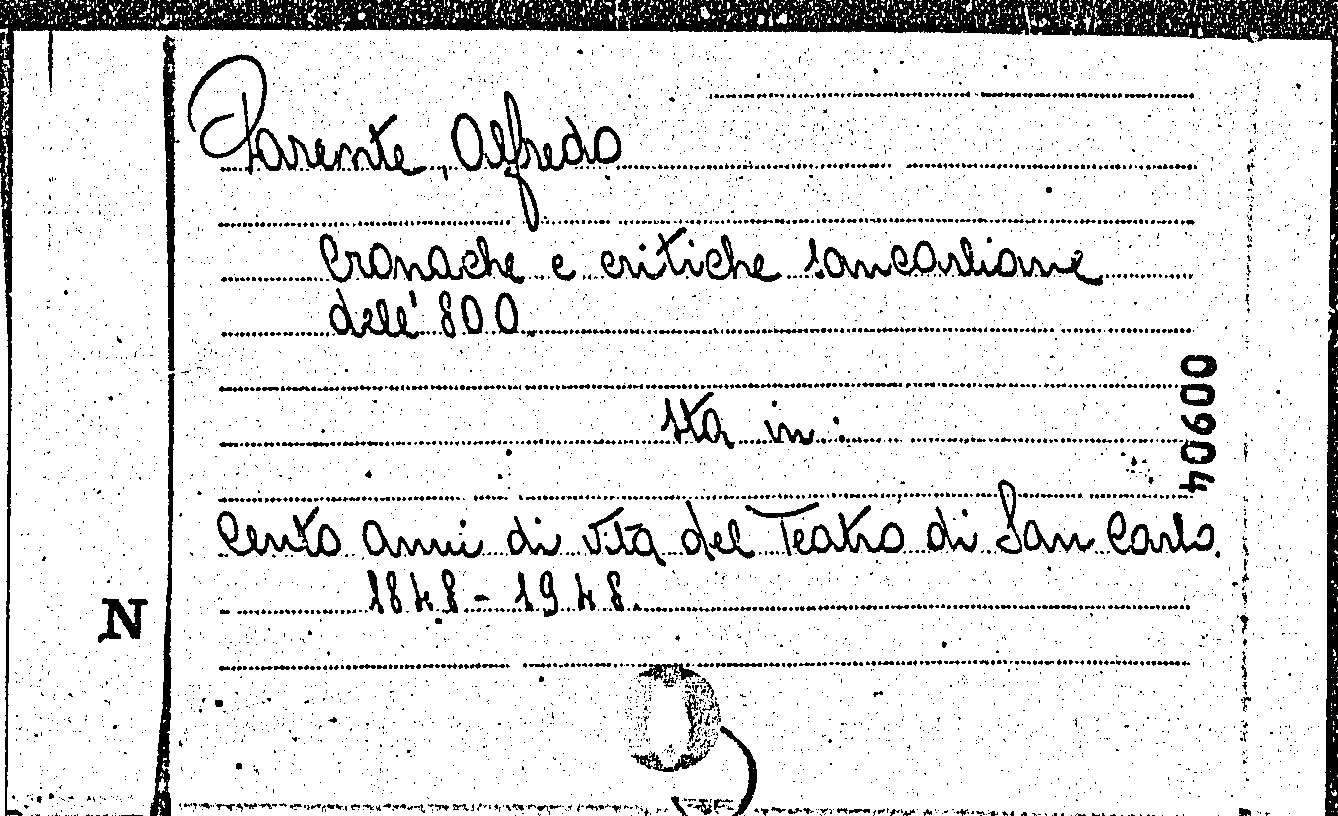 Parente, Alfredo
Cronache e critiche sancarliane
dell' 800.
sta in:
Cento anni di vita del Teatro di San Carlo.
1848-1948.
N
00904